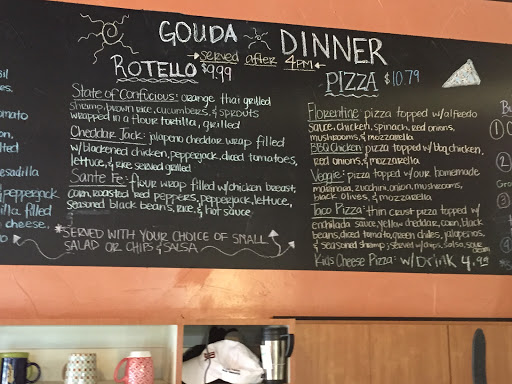 GOUDA DINNER
→ served after 4PM ←
ROTELLO $9.99
State of Confucious: orange thai grilled
shrimp, brown rice, cucumbers, & sprouts
wrapped in a flour tortilla, grilled
Cheddar Jack: jalapeno cheddar wrap filled
w/blackened chicken, pepperjack, diced tomatoes,
lettuce, & rice served grilled
Sante Fe: flour wrap filled w/chicken breast,
corn, roasted red peppers, pepperjack, lettuce,
seasoned black beans, rice, & hot sauce
*SERVED WITH YOUR CHOICE OF SMALL
SALAD OR CHIPS & SALSA
PIZZA $10.79
Florentine: pizza topped w/alfredo
sauce, chicken, spinach, red onions,
mushrooms, & mozzarella
BBQ Chicken: pizza topped w/ bbq chicken,
red onions, & mozzarella
Veggie: pizza topped w/our homemade
marinara, zucchini, onion, mushrooms,
black olives, & mozzarella
Taco Pizza: thin crust pizza topped w/
enchilada sauce, yellow cheddar, corn, black
beans, diced tomato, green chiles, jalapenos,
& seasoned shrimp; served w/chips, salsa, sour
cream
Kids Cheese Pizza: w/Drink 4.99
omato
esadilla
pepperjack
illa filled
cheese.